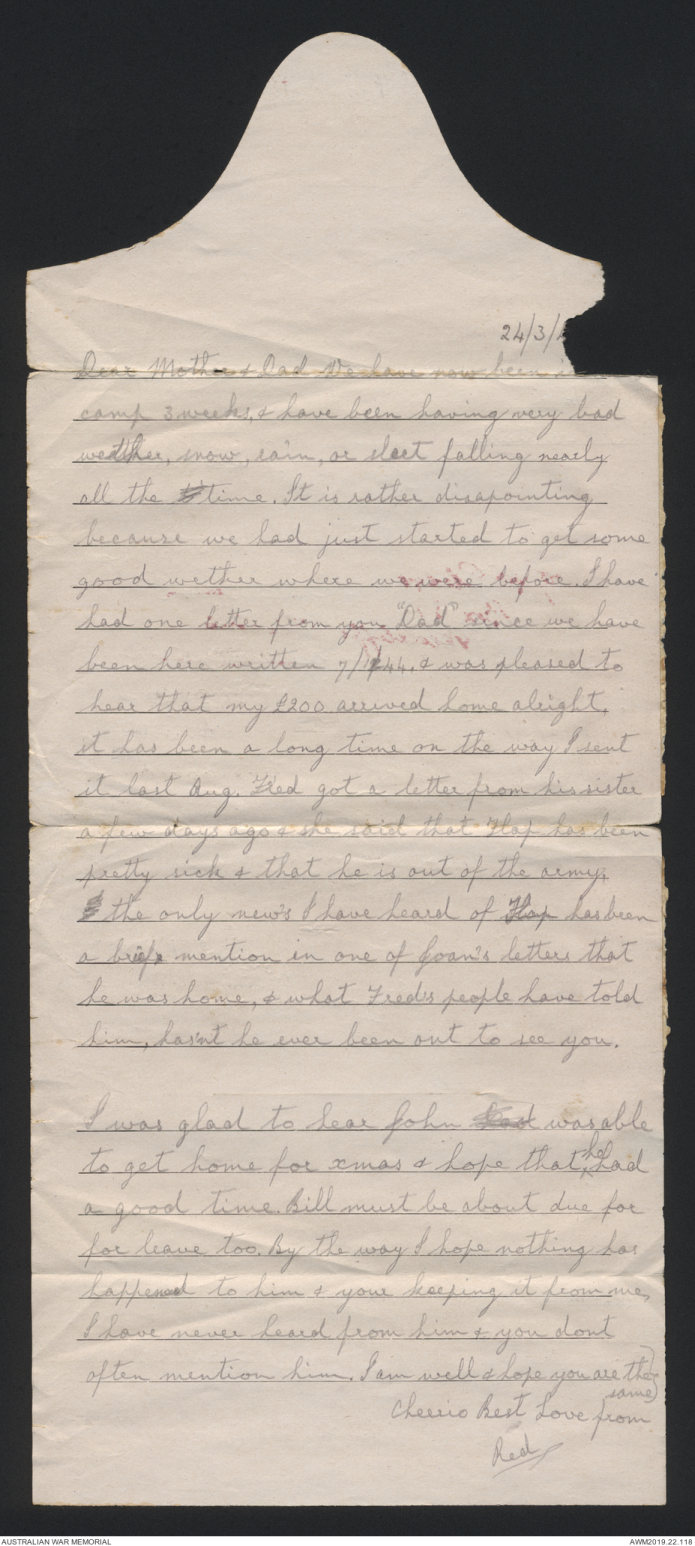 24/3/
Dear Mother & Dad We have now been
camp 3 weeks, & have been having very bad
weather, snow, rain, or sleet falling nearly
all the time. It is rather disapointing
because we had just started to get some
good wether where we were before. I have
had one letter from you "Dad" since we have
been here written 7/1/44, & was pleased to
hear that my £200 arrived home alright,
it has been a long time on the way I sent
it last Aug. Fred got a letter from his sister
a few days ago & she said that Hap has been
pretty sick & that he is out of the army.
the only new's I have heard of Hap has been
a brief mention in one of Joan's letters that
he was home, & what Fred's people have told
him, has'nt he ever been out to see you.
I was glad to hear John was able
to get home for xmas & hope that he had
a good time. Bill must be about due for
for leave too. By the way I hope nothing has
happened to him & your keeping it from me,
I have never heard from him & you dont
often mention him. I am well & hope you are the
same
Cheerio Best Love from
Red
AUSTRALIAN WAR MEMORIAL
AWM2019.22.118